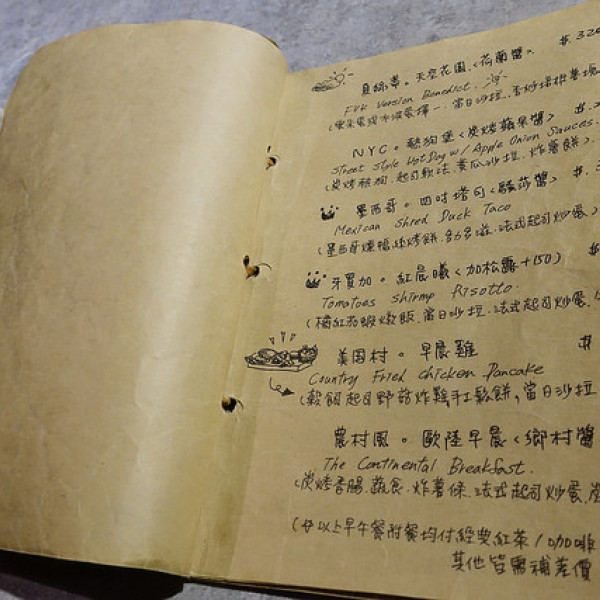 貝絲蒂。天空花園〈荷蘭醬〉 $.320
FVK Version Benedict.
當日沙拉.香炒塔
NYC。熱狗堡〈炭烤蘋果醬〉 $.
Street Style HotDog w/ Apple Onion Sauces.
(炭烤熱狗.起司軟法.黃瓜沙拉.炸薯餅).
墨西哥。四吋塔可〈騷莎醬〉 $.3
Mexican Shred Duck Taco
(墨西哥燻鴨烤餅.多多滋.法式起司炒蛋)
牙買加。紅晨曦〈加松露+150〉 $
Tomatoes Shrimp Risotto.
(橘紅茄蝦燉飯.當日沙拉.法式起司炒蛋.
美国村。早晨雞 $
Country Fried Chicken Pancake
(穀飼起司野菇炸雞,手工鬆餅,當日沙拉
農村風。歐陸早晨〈鄉村醬
The Continental Breakfast.
(炭烤香腸.蔬食.炸薯條.法式起司炒蛋.炭
(以上早午餐附餐均付經典紅茶/咖啡
其他皆需補差價